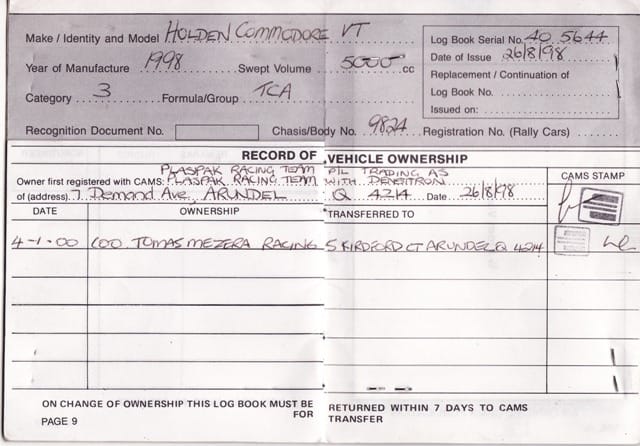 Make / Identity and Model HOLDEN COMMODORE VT
Log Book Serial No. 40 5644
Date of Issue 26/8/98
Year of Manufacture 1998 Swept Volume 5000 cc
Replacement / Continuation of
Log Book No.
Category 3 Formula/Group TCA
Issued on:
Recognition Document No. Chassis/Body No. 9824 Registration No. (Rally Cars)
RECORD OF VEHICLE OWNERSHIP
PLASPAK RACING TEAM P/L TRADING AS
Owner first registered with CAMS: PLASPAK RACING TEAM WITH DENSITRON
CAMS STAMP
of (address). 7 Demand Ave, ARUNDEL Q 4214 Date 26/8/98
DATE OWNERSHIP TRANSFERRED TO
4-1-00 TOMAS MEZERA RACING 5 KIRDFORD CT ARUNDEL Q 4214
ON CHANGE OF OWNERSHIP THIS LOG BOOK MUST BE RETURNED WITHIN 7 DAYS TO CAMS
FOR TRANSFER
PAGE 9